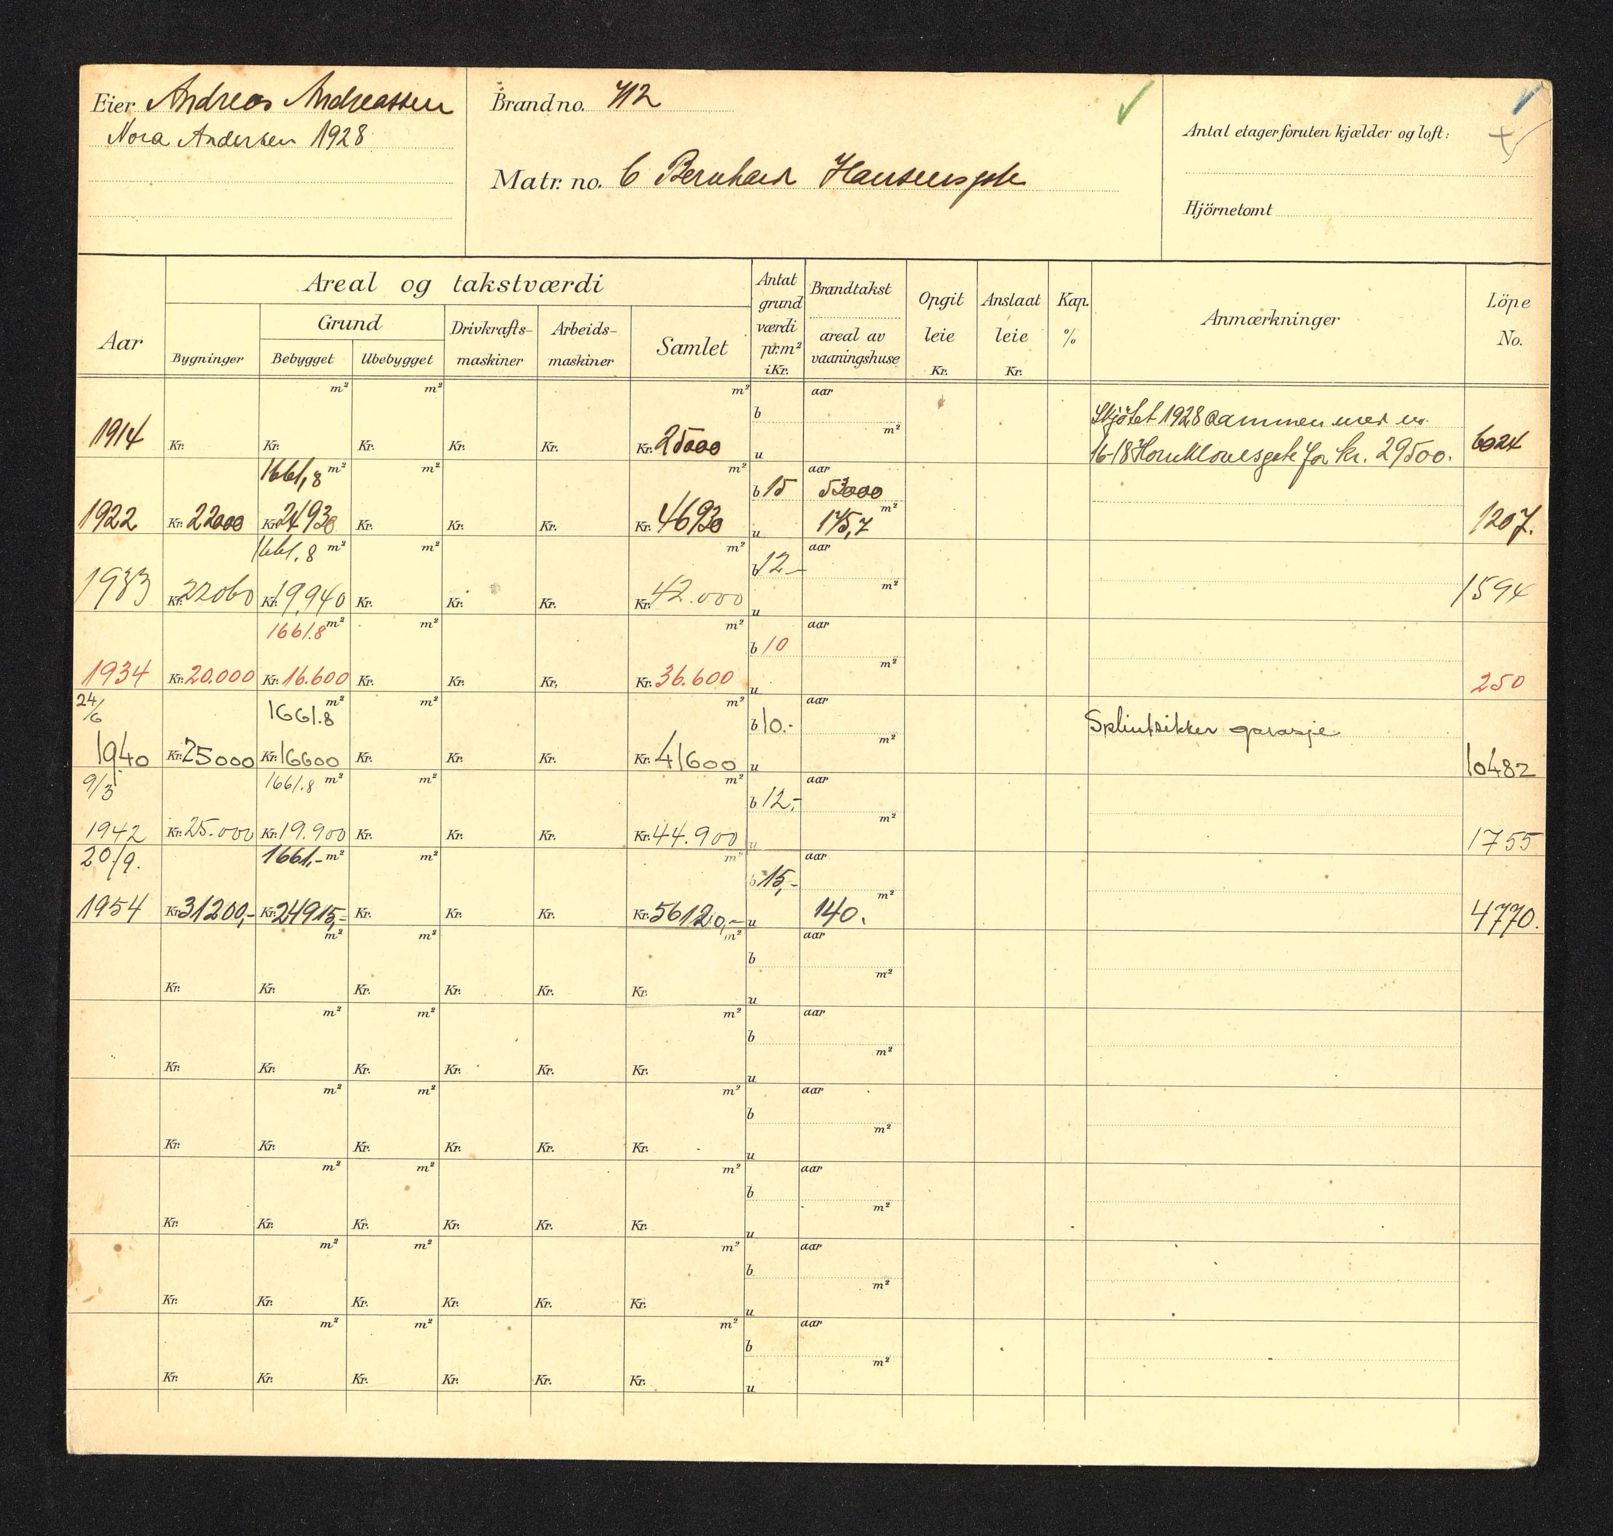 Eier Andreas Andreassen
Nora Andersen 1928
Brand no. 712
Matr. no. 6 Bernhard Hansensgate
Antal etager foruten kjælder og loft:
Hjörnetomt
Aar
Areal og takstværdi
Bygninger
Grund
Bebygget Ubebygget
Drivkrafts-
maskiner
Arbeids-
maskiner
Samlet
Antal
grund
værdi
pr.m²
i Kr.
Brandtakst
areal av
vaaningshuse
Opgit
leie
Kr.
Anslaat
leie
Kr.
Kap.
%
Anmærkninger
Löpe
No.
m² m² m² b aar Skjötet 1928 sammen med no.
1914 Kr. Kr. Kr. Kr. Kr. Kr. 25000 u m² 16-18 Hornklovesgate for kr. 29500. 6024
1661,8 m² m² m² b 15 aar 53000
1922 Kr. 22000 Kr. 24930 Kr. Kr. Kr. Kr. 46930 u m² 175,7 1207.
1661.8 m² m² m² b 12.- aar
1933 Kr. 22060 Kr. 19,940 Kr. Kr. Kr. Kr. 42.000 u m² 1594
1661.8 m² m² m² b 10 aar
1934 Kr. 20.000 Kr. 16.600 Kr. Kr. Kr. Kr. 36.600 u m² 250
24/6 1661.8 m² m² m² b 10.- aar Splintsikker garasje
1940 Kr. 25000 Kr. 16600 Kr. Kr. Kr. Kr. 41600 u m² 10482
9/3 1661.8 m² m² m² b 12,- aar
1942 Kr. 25.000 Kr. 19.900 Kr. Kr. Kr. Kr. 44.900 u m² 1755
20/9. 1661,- m² m² m² b 15,- aar
1954 Kr. 31200,- Kr. 24915,- Kr. Kr. Kr. Kr. 56120,- u m² 140. 4770.
m² m² m² b aar
Kr. Kr. Kr. Kr. Kr. Kr. u m²
m² m² m² b aar
Kr. Kr. Kr. Kr. Kr. Kr. u m²
m² m² m² b aar
Kr. Kr. Kr. Kr. Kr. Kr. u m²
m² m² m² b aar
Kr. Kr. Kr. Kr. Kr. Kr. u m²
m² m² m² b aar
Kr. Kr. Kr. Kr. Kr. Kr. u m²
m² m² m² b aar
Kr. Kr. Kr. Kr. Kr. Kr. u m²